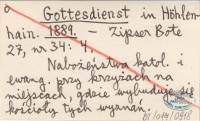 Gottesdienst in Höhlen-
hain. 1889. – Zipser Bote
27, nr 34: 4,
Nabożeństwa katol. i
ewang. przy krzyżach na
miejscach, gdzie wybuduje się
kościoły tych wyznań.